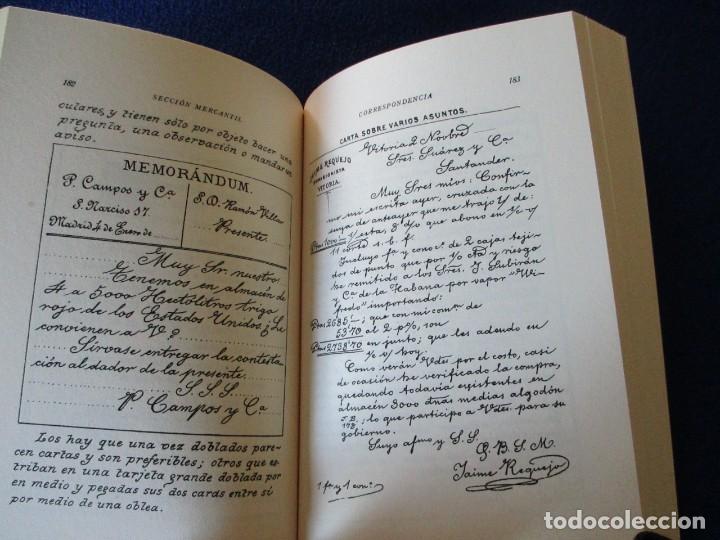 182
SECCIÓN MERCANTIL
culares, y tienen sólo por objeto hacer una
pregunta, una observación o mandar un
aviso.
MEMORÁNDUM.
P. Campos y Cª
S. Narciso 37.
Madrid 4 de Enero de
S.D. Ramón Villa
Presente.
Muy Sr. nuestro:
Tenemos en almacén de
4 a 5000 Hectolitros trigo
rojo de los Estados Unidos ¿Le
convienen a V?
Sírvase entregar la contesta
ción al dador de la presente.
S.S.S.
P Campos y Cª
Los hay que una vez doblados pare-
cen cartas y son preferibles; otros que es
triban en una tarjeta grande doblada por
en medio y pegadas sus dos cards entre sí
por medio de una oblea.
183
CORRESPONDENCIA
CARTA SOBRE VARIOS ASUNTOS.
REQUEJO
VITORIA.
Vitoria 2 Novbre
Sres. Suárez y Cª
Santander.
Muy Sres míos: Confir-
mo mi escrita ayer, cruzada con la
suya de anteayer que me trajo V/ de:
Ptas 1000'— 1/ esta, 8 d/v que abono en 1/c v/
11 corte s. b. f.
Incluyo fª y conoc. de 2 cajas teji-
dos de punto que por 1/ cta y riesgo
he remitido a los Sres. J. Subirán
y Cª de la Habana por vapor "Wi-
fredo" importando:
Ptas 2685'—; que con mi comon.
53'70 al 2 p%, son
Ptas 2738'70 en junto, que les adeudo en
1/c v/ hoy.
Como verán Vdes por el costo, casi
de ocasión he verificado la compra,
quedando todavía existentes en
almacén 3000 dnas medias algodón
J.B.
178; lo que participo a Vdes. para su
gobierno.
Suyo afmo y S.S.
Q.B.S.M.
Jaime Requejo
1 fª y 1 conoc.
todocoleccion